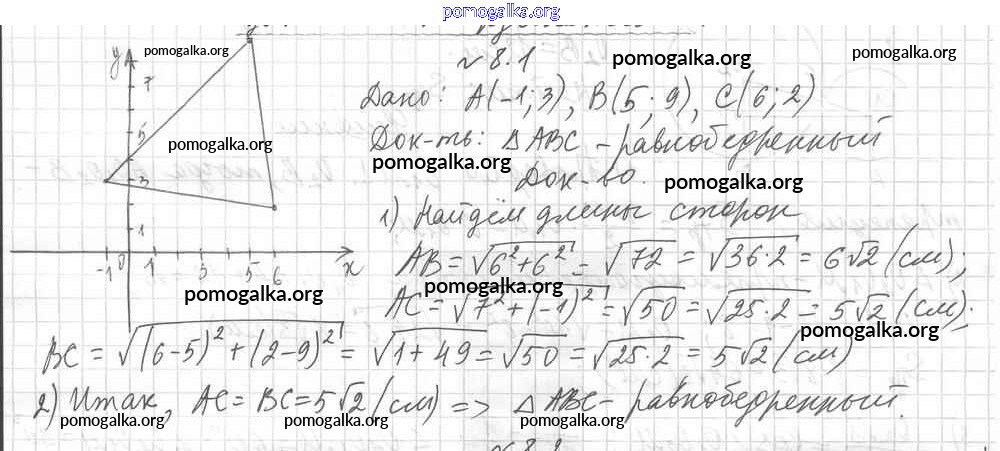 pomogalka.org
№ 8.1
pomogalka.org pomogalka.org pomogalka.org
y
Дано: A(-1; 3), B(5; 9), C(6; 2)
7
Док-ть: △ABC - равнобедренный
5
pomogalka.org pomogalka.org
Док-во. pomogalka.org
3
1) Найдём длины сторон
1
AB = √6²+6² = √72 = √36·2 = 6√2 (см);
-1 0 1 3 5 6 x
pomogalka.org pomogalka.org
AC = √7²+(-1)² = √50 = √25·2 = 5√2 (см);
pomogalka.org
BC = √(6-5)²+(2-9)² = √1+49 = √50 = √25·2 = 5√2 (см)
2) Итак, AC = BC = 5√2 (см) => △ABC - равнобедренный.
pomogalka.org pomogalka.org pomogalka.org